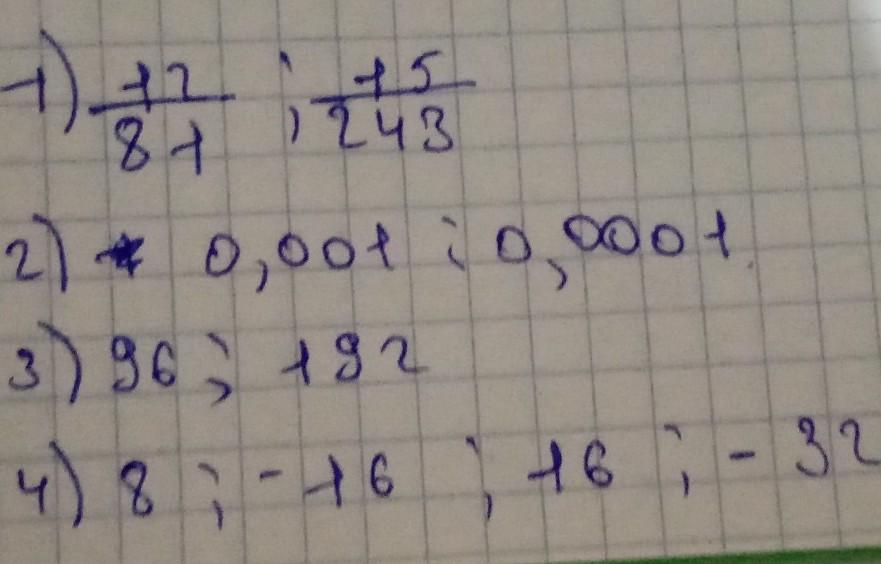 1) 12/81 ; 15/243
2) 0,001 ; 0,0001
3) 96 ; 192
4) 8 ; -16 ; 16 ; -32